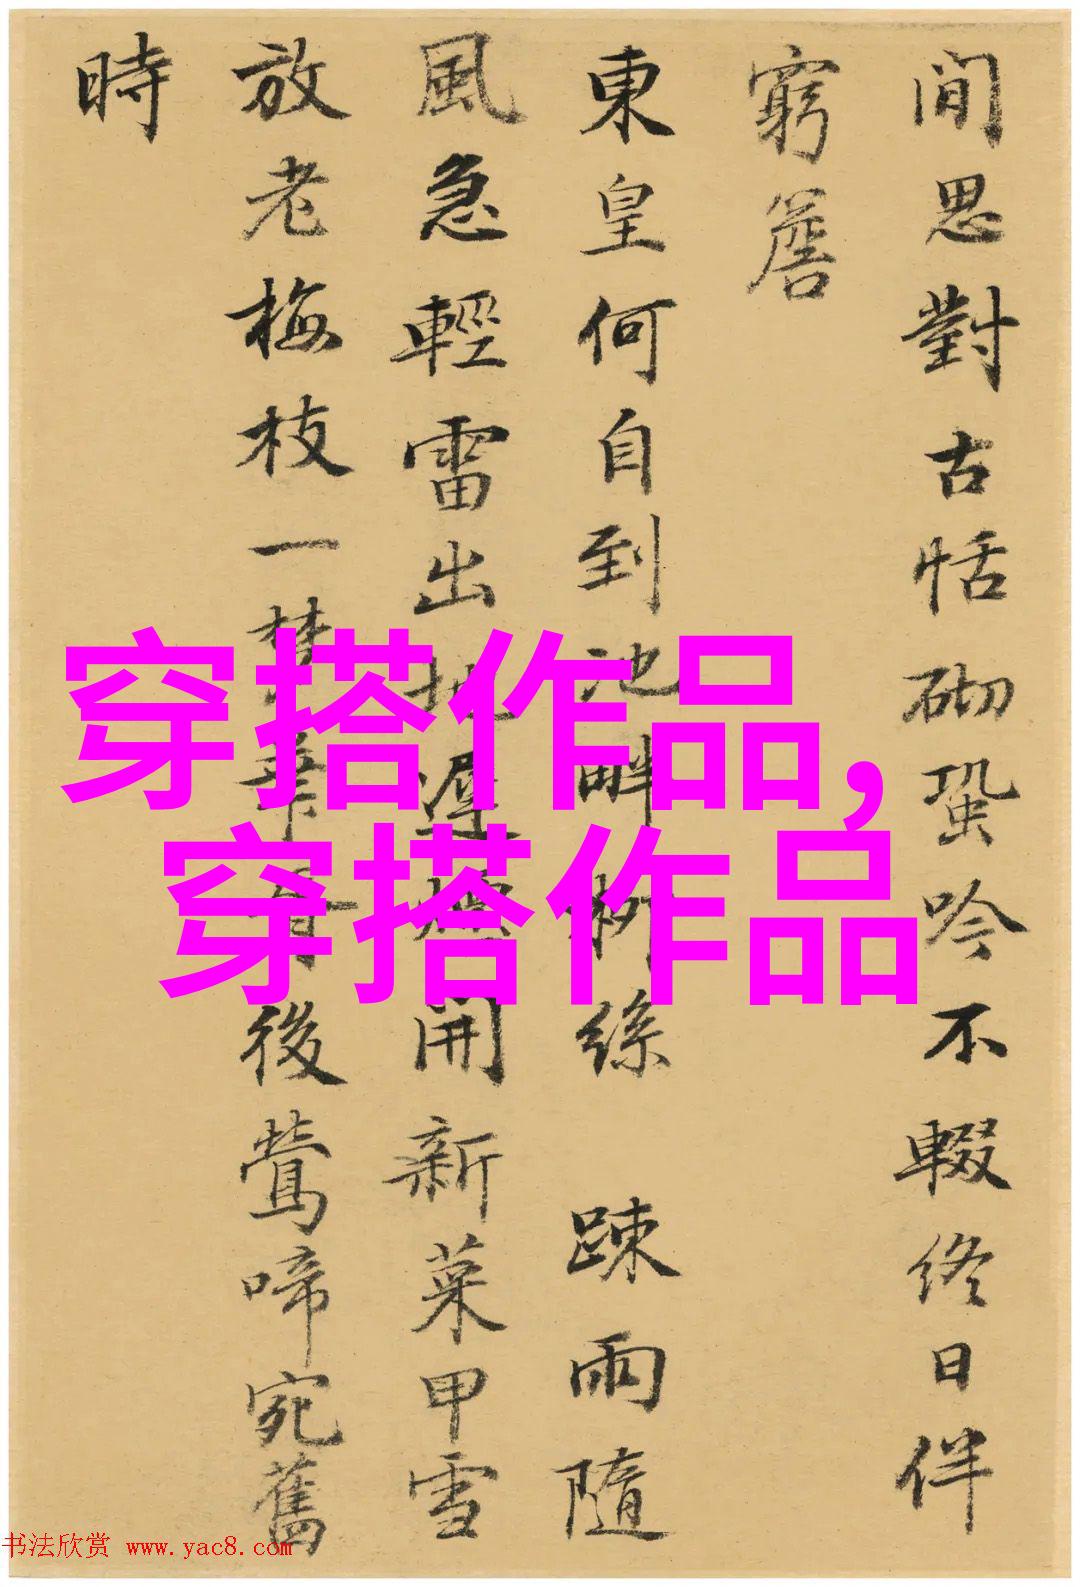 閒思對古恬砌蛩吟不輟終日伴
窮簷
東皇何自到池畔柳絲 踈雨隨
風急輕雷出地遲煙開新菜甲雪
放老梅枝一梦華胥後鶯啼宛舊
時
穿搭作品,
穿搭作品
书法欣赏 www.yac8.com